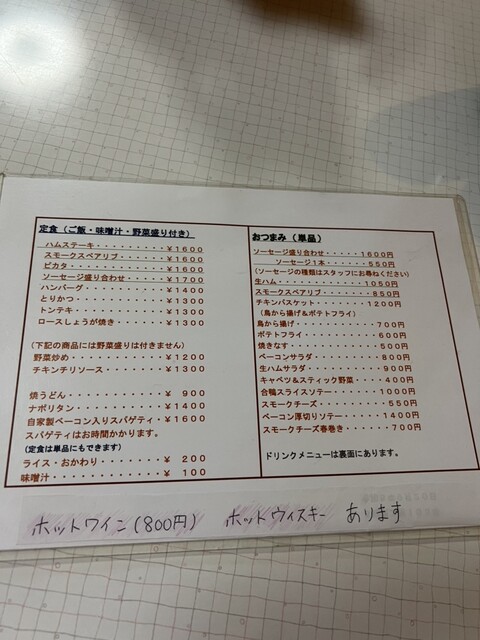 定食（ご飯・味噌汁・野菜盛り付き）
ハムステーキ・・・・・・・・・¥1600
スモークスペアリブ・・・・・・¥1600
ピカタ・・・・・・・・・・・・¥1600
ソーセージ盛り合わせ・・・・・¥1700
ハンバーグ・・・・・・・・・・¥1400
とりかつ・・・・・・・・・・・¥1300
トンテキ・・・・・・・・・・・¥1300
ロースしょうが焼き・・・・・・¥1300
（下記の商品には野菜盛りは付きません）
野菜炒め・・・・・・・・・・・¥1200
チキンチリソース・・・・・・・¥1300
焼うどん・・・・・・・・・・・¥ 900
ナポリタン・・・・・・・・・・¥1400
自家製ベーコン入りスパゲティ・¥1600
スパゲティはお時間かかります。
（定食は単品にもできます）
ライス・おかわり・・・・・・・¥ 200
味噌汁・・・・・・・・・・・・¥ 100
おつまみ（単品）
ソーセージ盛り合わせ・・・・・1600円
ソーセージ1本・・・・・550円
（ソーセージの種類はスタッフにお尋ねください）
生ハム・・・・・・・・・・・1050円
スモークスペアリブ・・・・・850円
チキンバスケット・・・・・・1200円
（鳥から揚げ＆ポテトフライ）
鳥から揚げ・・・・・・・・・700円
ポテトフライ・・・・・・・・600円
焼きなす・・・・・・・・・・500円
ベーコンサラダ・・・・・・・800円
生ハムサラダ・・・・・・・・900円
キャベツ＆スティック野菜・・・400円
合鴨スライスソテー・・・・・1000円
スモークチーズ・・・・・・・550円
ベーコン厚切りソテー・・・・1400円
スモークチーズ春巻き・・・・700円
ドリンクメニューは裏面にあります。
ホットワイン（800円） ホットウィスキー あります